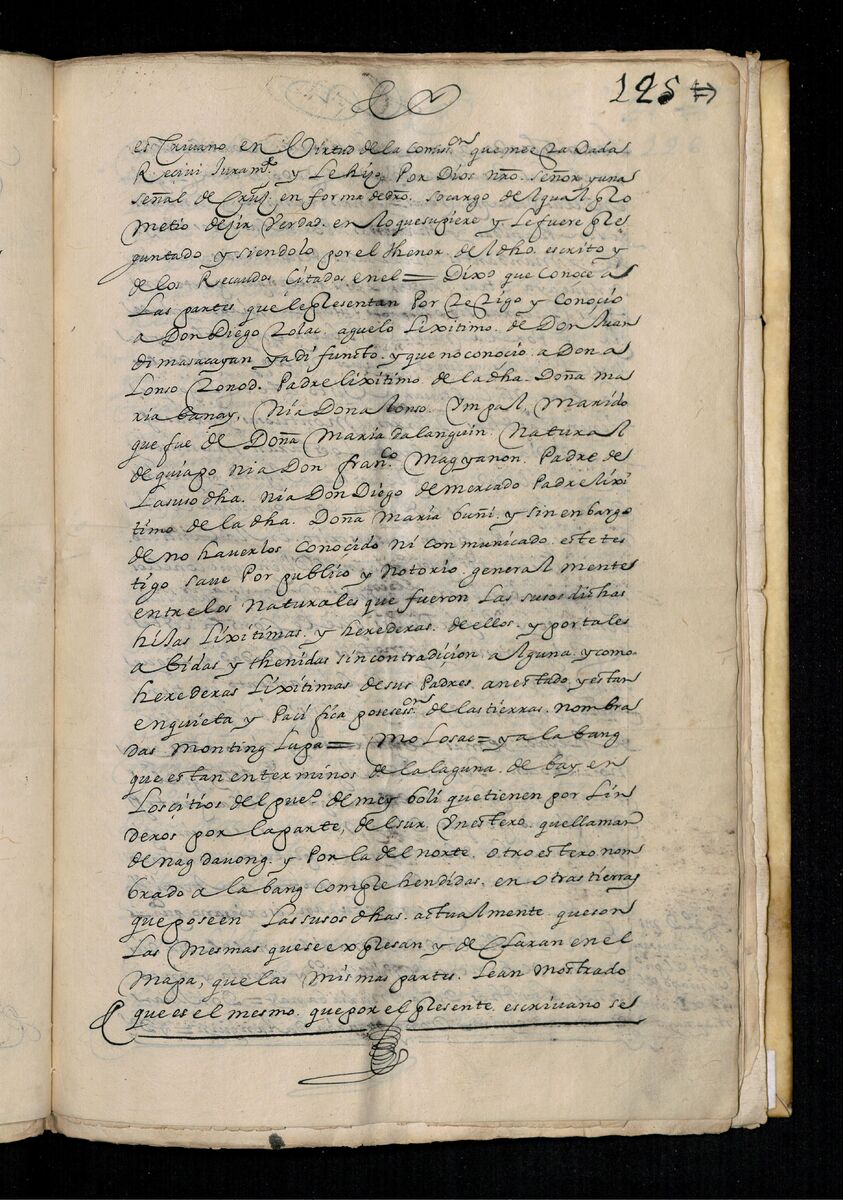 125
escrivano en Virtud de la Comis.on que me esta Dada
Recivi Juram.to y Le hiço Por Dios nro. señor y una
señal de Cruz. en forma de dro. so cargo del qual pro
metio dejir Verdad. en lo que supiere y Le fuere pre
guntado y siendolo por el thenor. del dho. escrito y
de los Recaudos Citados en el = Dixo que Conoçe a
Las partes que le presentan Por testigo y Conoçio
a Don Diego tolac. aguelo Lixitimo. de Don Juan
dimasacayan ya difuncto. y que no conocio a Don a
Lonso tonod. Padre lixitimo de la dha. Doña ma
ria banay, Nia Don alonso. Ympal, Marido
que fue de Doña Maria dalanguin. Natural
de quiapo ni a Don fran.co Magyanon. Padre de
La suso dha. nia Don Diego de mercado Padre lixi
timo de la dha. Doña Maria buñi y sin enbargo
de no haverlos Conoçido ni conmunicado. este tes
tigo save Por publico y Notorio general mente
entre los Naturales que fueron Las susos dichas
hijas Lixitimas. y herederas. de ellos. y por tales
abidas y thenidas sin contradicion alguna. y como
herederas Lixitimas de sus Padres. an estado y estan
en quieta y Pacifica poseçes.on de las tierras. nombra
das Monting Lupa = Molosac = y alabang
que estan en terminos de la laguna. de bay. en
Los citios del pue.o de mey boli que tienen por Lin
deros por la parte, del sur. Yn estero. que llaman
de nag davong. y Por la del norte. otro estero nom
brado alabang Comprehendidas. en otras tierras
que poseen Las susos dhas. actualmente. que son
Las Mesmas que se expresan y de Claran en el
Mapa, que las Mismas partes. Lean mostrado
que es el mesmo. que por el presente. escrivano se